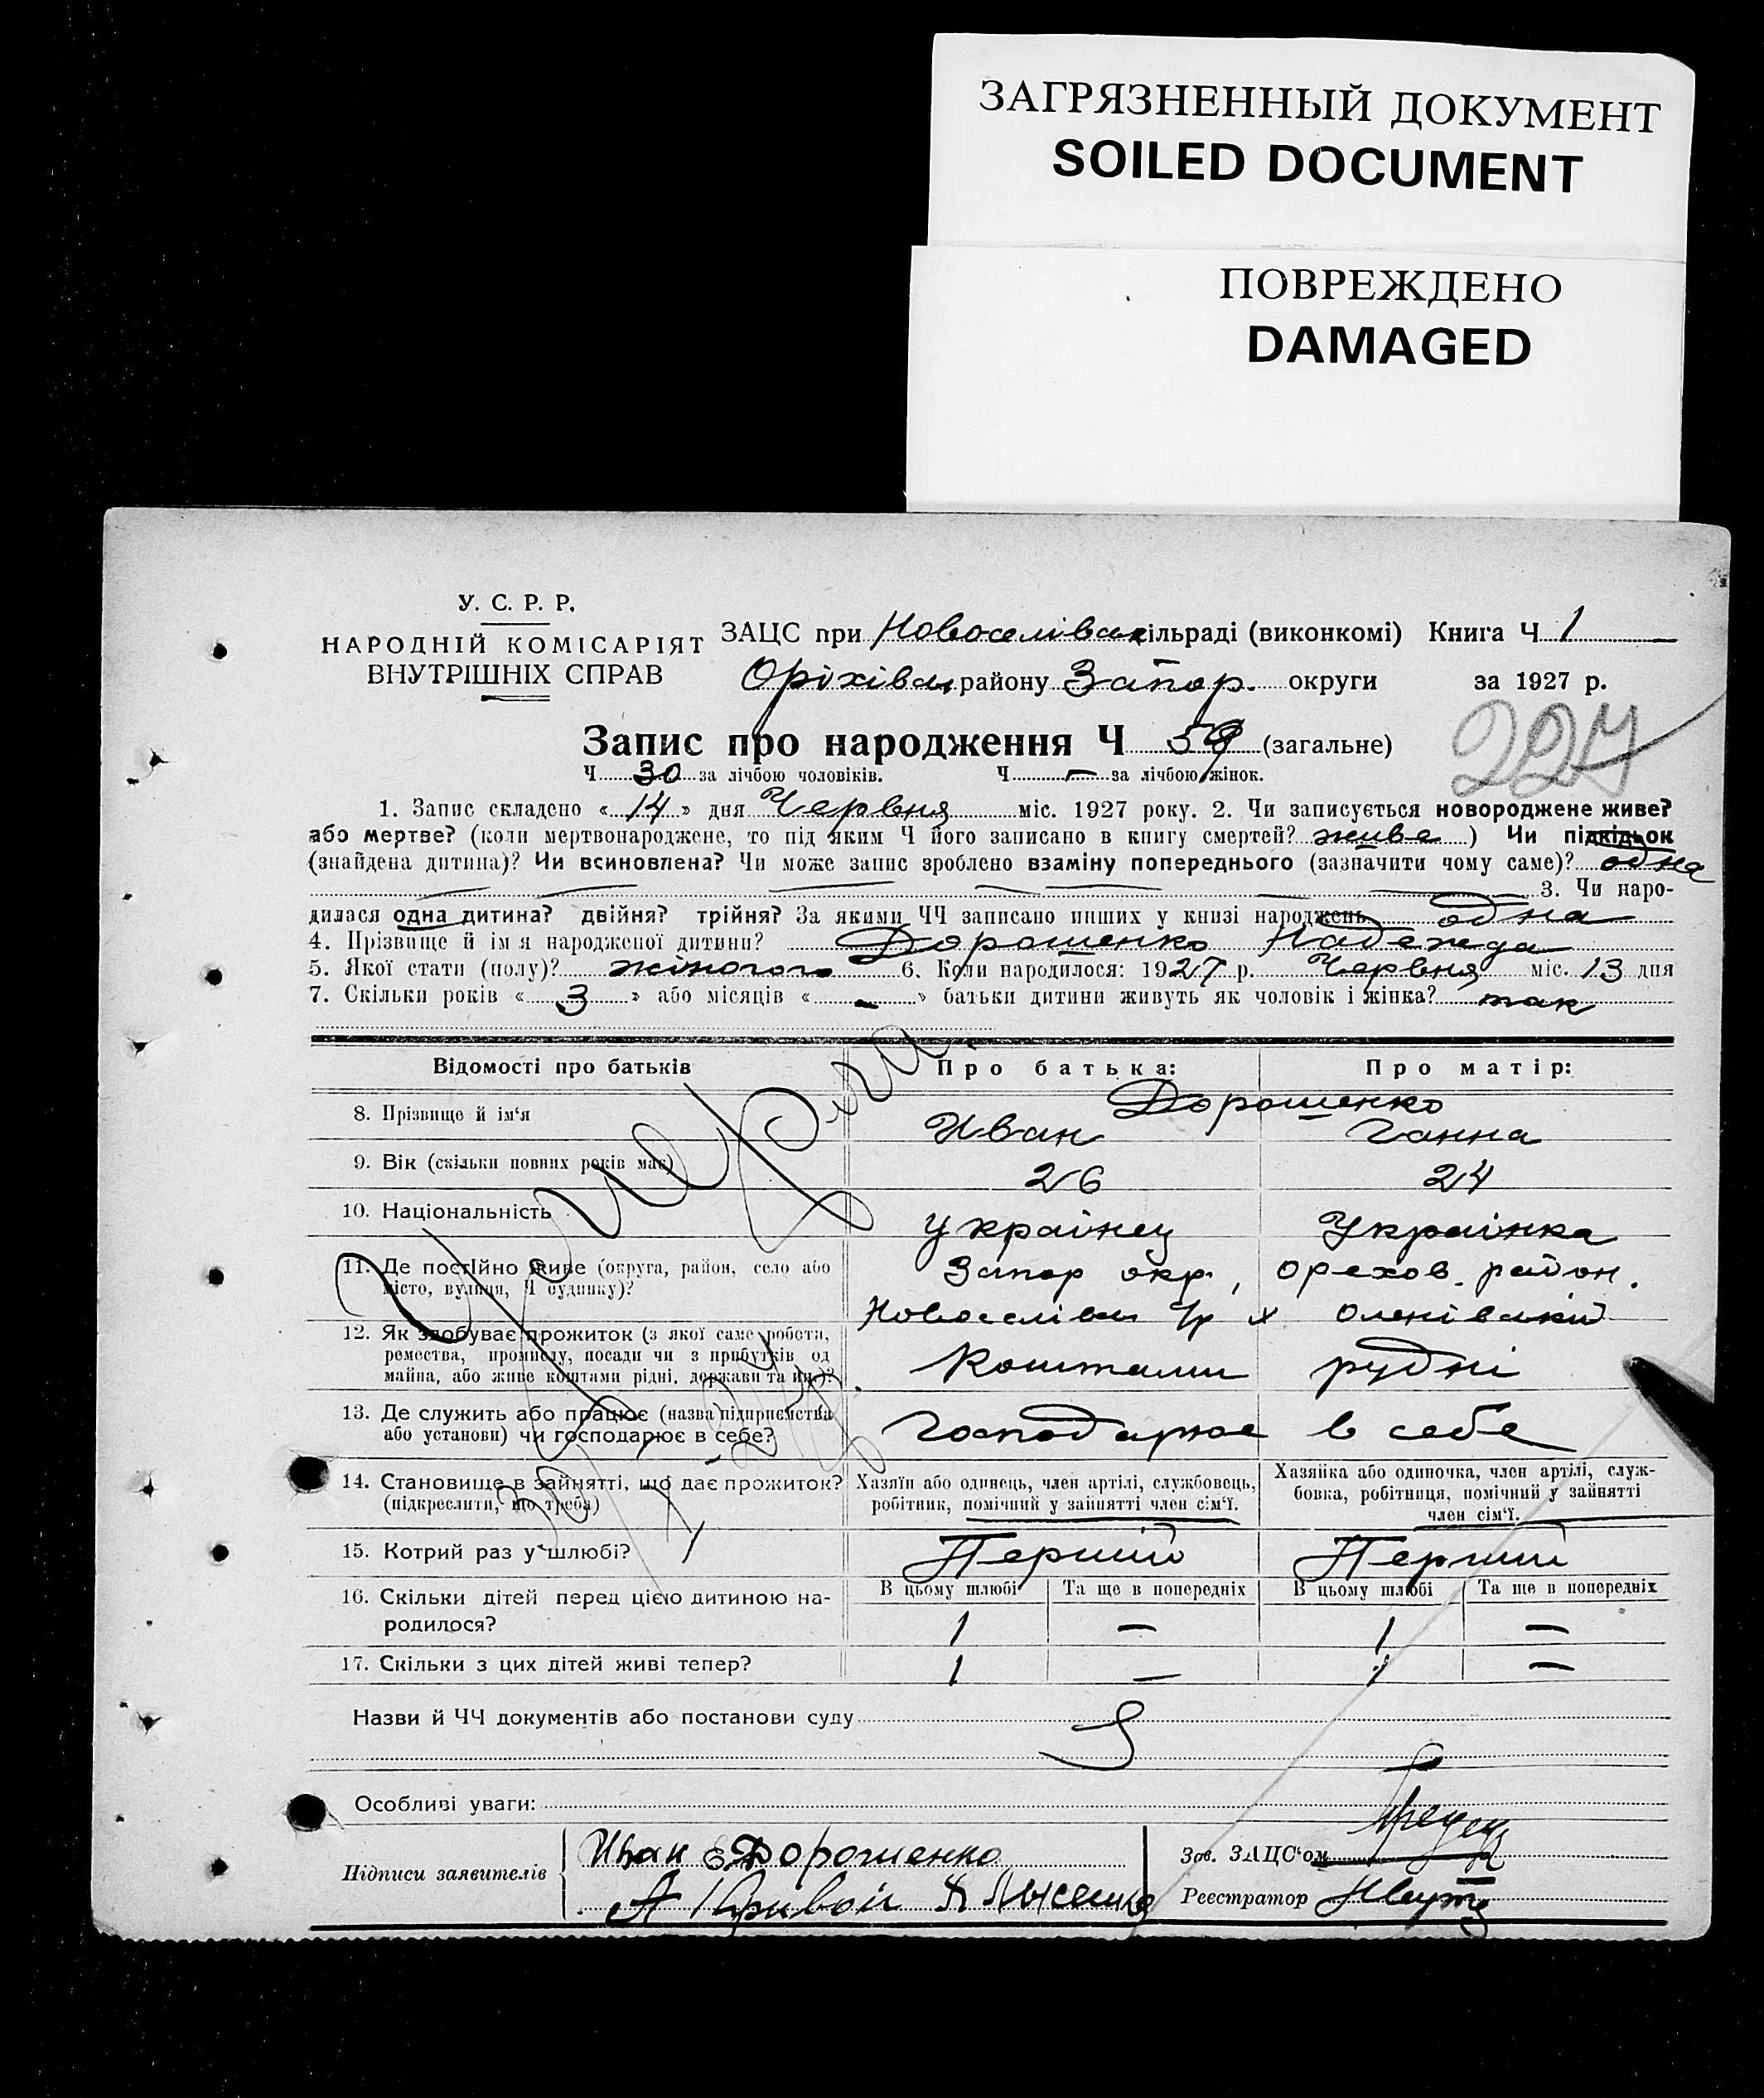 ЗАГРЯЗНЕННЫЙ ДОКУМЕНТ
SOILED DOCUMENT
ПОВРЕЖДЕНО
DAMAGED
У. С. Р. Р.
НАРОДНІЙ КОМІСАРІЯТ
ВНУТРІШНІХ СПРАВ
ЗАЦС при Новоселівськ сільраді (виконкомі) Книга Ч 1
Оріхівськ району Запор. округи за 1927 р.
227
Запис про народження Ч 59 (загальне)
Ч 30 за лічбою чоловіків. Ч — за лічбою жінок.
1. Запис складено « 14 » дня Червня міс. 1927 року. 2. Чи записується новороджене живе?
або мертве? (коли мертвонароджене, то під яким Ч його записано в книгу смертей? живе ) Чи підкідьок
(знайдена дитина)? Чи всиновлена? Чи може запис зроблено взаміну попереднього (зазначити чому саме)? одна
3. Чи наро-
дилася одна дитина? двійня? трійня? За якими ЧЧ записано инших у книзі народжень одна
4. Прізвище й ім я народженої дитини? Дорошенко Надежда
5. Якої стати (полу)? жіночого 6. Коли народилося: 1927 р. Червня міс. 13 дня
7. Скільки років « 3 » або місяців « - » батьки дитини живуть як чоловік і жінка? так
Відомості про батьків Про батька: Про матір:
Дорошенко
8. Прізвище й ім'я Иван Ганна
9. Вік (скільки повних років має) 26 24
10. Національність Украінец Украінка
11. Де постійно живе (округа, район, село або Запор окр, Орехов. район.
місто, вулиця, Ч будинку)? х Оленівський
12. Як здобуває прожиток (з якої саме роботи,
ремества, промислу, посади чи з прибутків од Коштами рудні
майна, або живе коштами рідні, держави та ин.)?
13. Де служить або працює (назва підприємства Господарює в себе
або установи) чи господарює в себе?
14. Становище в зайнятті, що дає прожиток? Хазяїн або одинець, член артілі, службовець, Хазяйка або одиночка, член артілі, служ-
(підкреслити, що треба) робітник, помічний у зайнятті член сім'ї. бовка, робітниця, помічний у зайнятті
член сім'ї.
15. Котрий раз у шлюбі? Перший Перший
16. Скільки дітей перед цією дитиною на- В цьому шлюбі Та ще в попередніх В цьому шлюбі Та ще в попередніх
родилося? 1 — 1 —
17. Скільки з цих дітей живі тепер? 1 — 1 —
Назви й ЧЧ документів або постанови суду
Особливі уваги:
Підписи заявителів Иван Е Дорошенко Зав. ЗАЦС'ом
А Кривой Лысенко Реєстратор